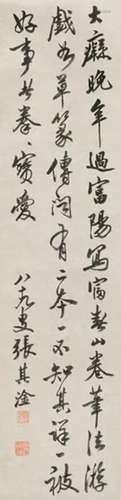 大癡晚年過富陽寫富春山卷筆法游
戲如草篆傳聞有二本一不知其詳一被
好事者拳拳寶愛
八十九叟張其淦